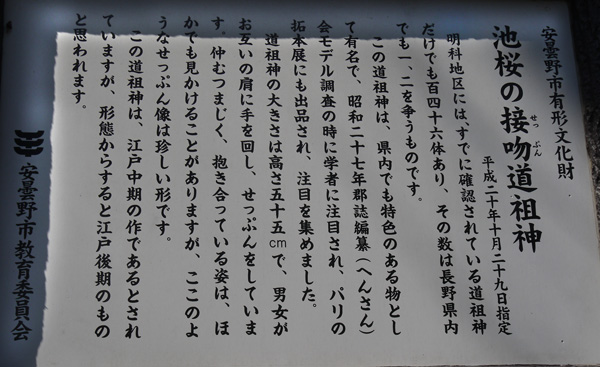 安曇野市有形文化財
池桜の接吻道祖神
せっぷん
平成二十年十月二十九日指定
明科地区には、すでに確認されている道祖神
だけでも百四十六体あり、その数は長野県内
でも一、二を争うものです。
この道祖神は、県内でも特色のある物とし
て有名で、昭和二十七年郡誌編纂（へんさん）
会モデル調査の時に学者に注目され、パリの
拓本展にも出品され、注目を集めました。
道祖神の大きさは高さ五十五cmで、男女が
お互いの肩に手を回し、せっぷんをしていま
す。仲むつまじく、抱き合っている姿は、ほ
かでも見かけることがありますが、ここのよ
うなせっぷん像は珍しい形です。
この道祖神は、江戸中期の作であるとされ
ていますが、形態からすると江戸後期のもの
と思われます。
安曇野市教育委員会